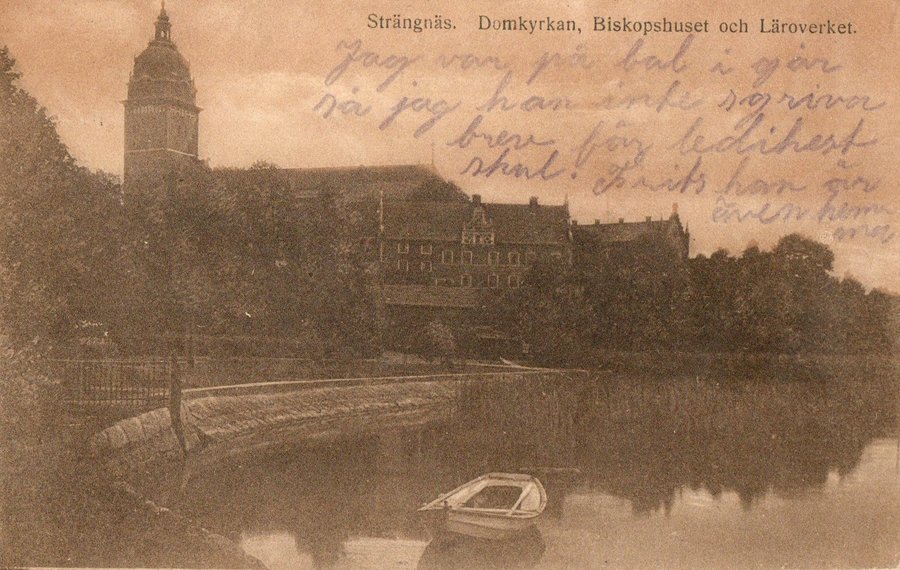 Strängnäs. Domkyrkan, Biskopshuset och Läroverket.
Jag var på bal i gjår
så jag han inte sgriva
brev för ledihest
skul. Frits han är
även hemma